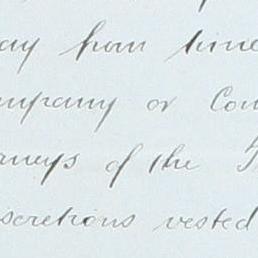 ay from time
mpany or Com
rneys of the
scretions vested